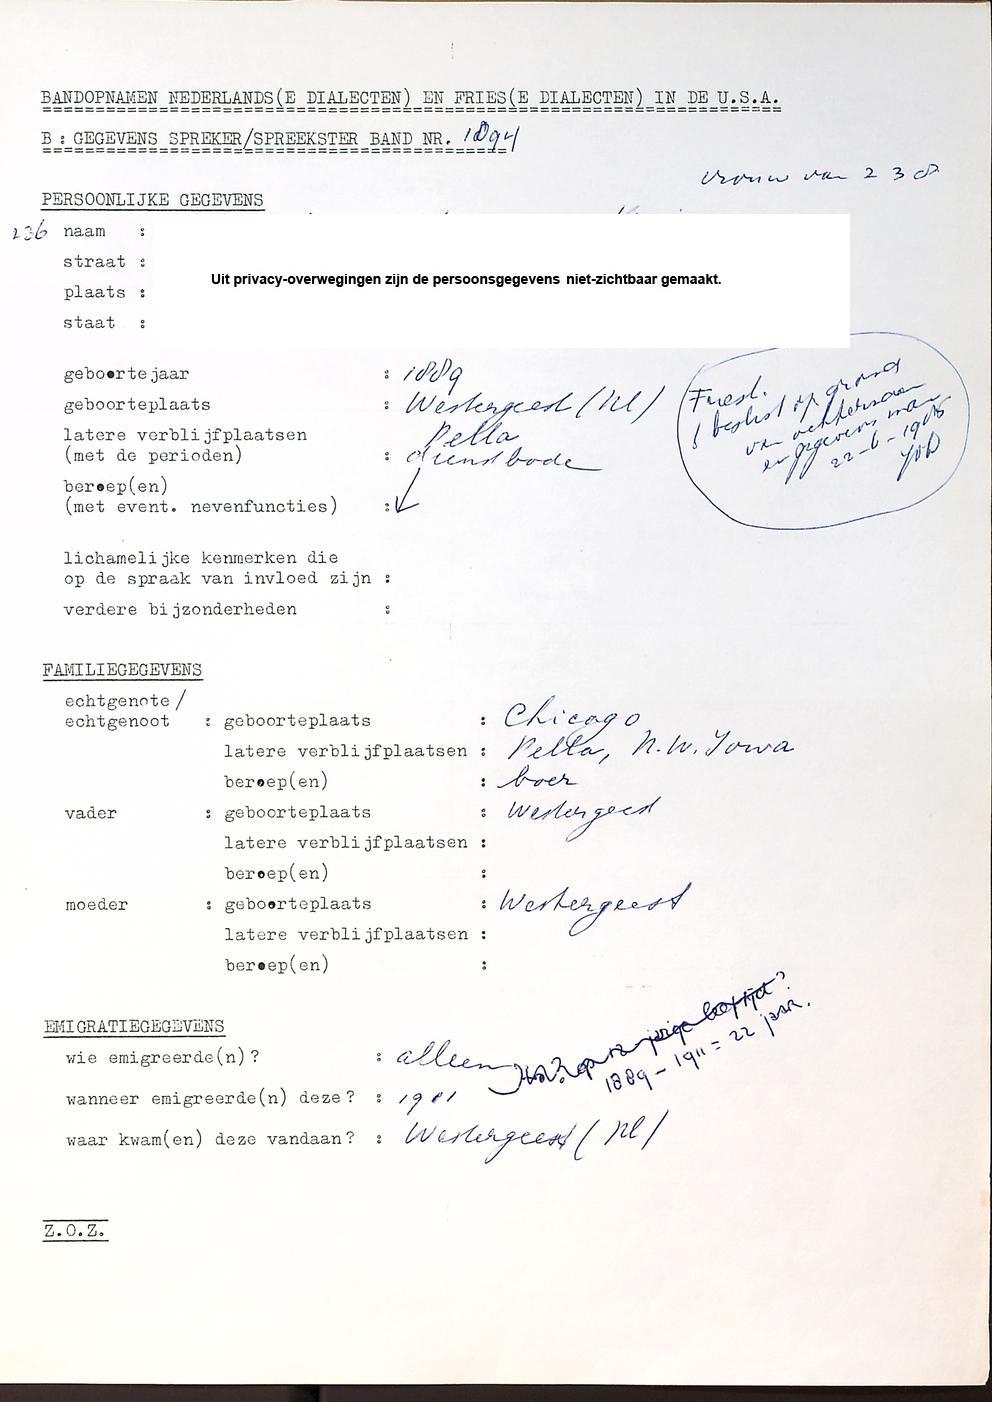 BANDOPNAMEN NEDERLANDS(E DIALECTEN) EN FRIES(E DIALECTEN) IN DE U.S.A.
B : GEGEVENS SPREKER/SPREEKSTER BAND NR. 1894
vrouw van 238
PERSOONLIJKE GEGEVENS
236 naam :
straat :
plaats :
staat :
Uit privacy-overwegingen zijn de persoonsgegevens niet-zichtbaar gemaakt.
geboortejaar : 1889
geboorteplaats : Westergeest (Nl)
latere verblijfplaatsen Pella
(met de perioden) : dienstbode
beroep(en)
(met event. nevenfuncties) :
Friesl.
beslist op grond
van achternaam
en gegevens man
22-6-1985
JvD
lichamelijke kenmerken die
op de spraak van invloed zijn :
verdere bijzonderheden :
FAMILIEGEGEVENS
echtgenote/
echtgenoot : geboorteplaats : Chicago
latere verblijfplaatsen : Pella, N.W. Iowa
beroep(en) : boer
vader : geboorteplaats : Westergeest
latere verblijfplaatsen :
beroep(en) :
moeder : geboorteplaats : Westergeest
latere verblijfplaatsen :
beroep(en) :
EMIGRATIEGEGEVENS
wie emigreerde(n)? : alleen op 12 jarige leeftijd?
1889 - 1911 = 22 jaar.
wanneer emigreerde(n) deze? : 1911
waar kwam(en) deze vandaan? : Westergeest (Nl)
Z.O.Z.